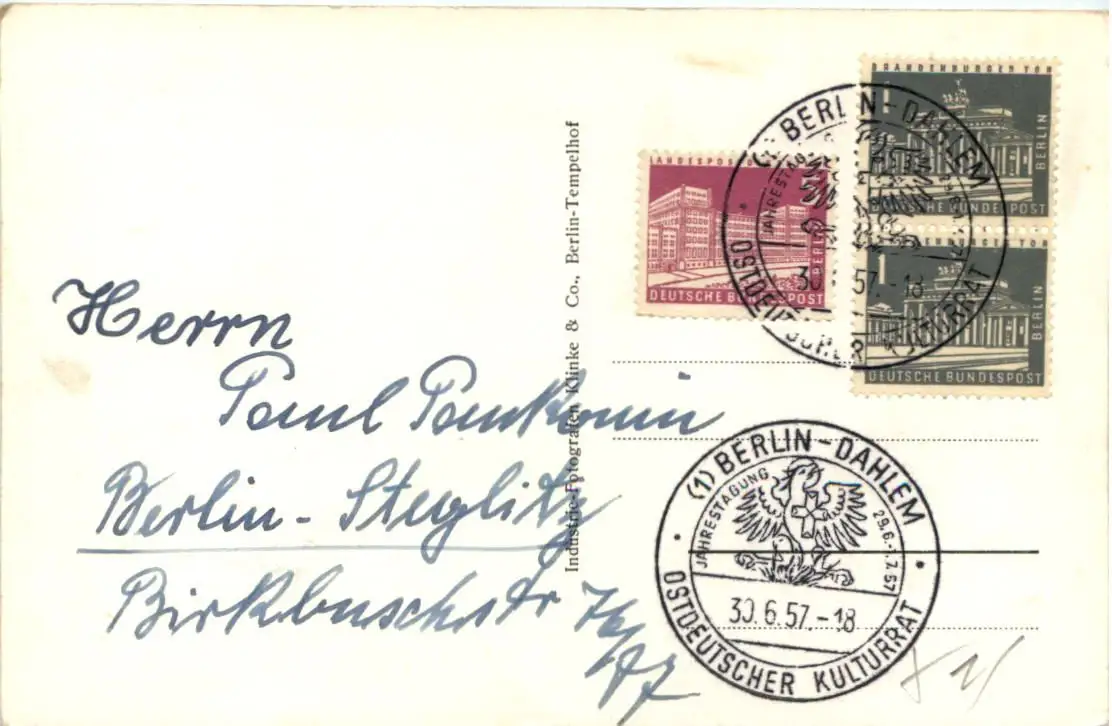 Herrn
Paul Pankonin
Berlin-Steglitz
Birkbuschstr
Industrie-Fotografen Klinke & Co., Berlin-Tempelhof
LANDESPOSTD
DEUTSCHE BUNDESPOST
BERLIN
BRANDENBURGER TOR
1
BERLIN
DEUTSCHE BUNDESPOST
BRANDENBURGER TOR
1
BERLIN
DEUTSCHE BUNDESPOST
(1) BERLIN-DAHLEM
JAHRESTAGUNG
30.6.57.-18
OSTDEUTSCHER KULTURRAT
(1) BERLIN-DAHLEM
JAHRESTAGUNG
29.6.-1.7.57
30.6.57.-18
OSTDEUTSCHER KULTURRAT